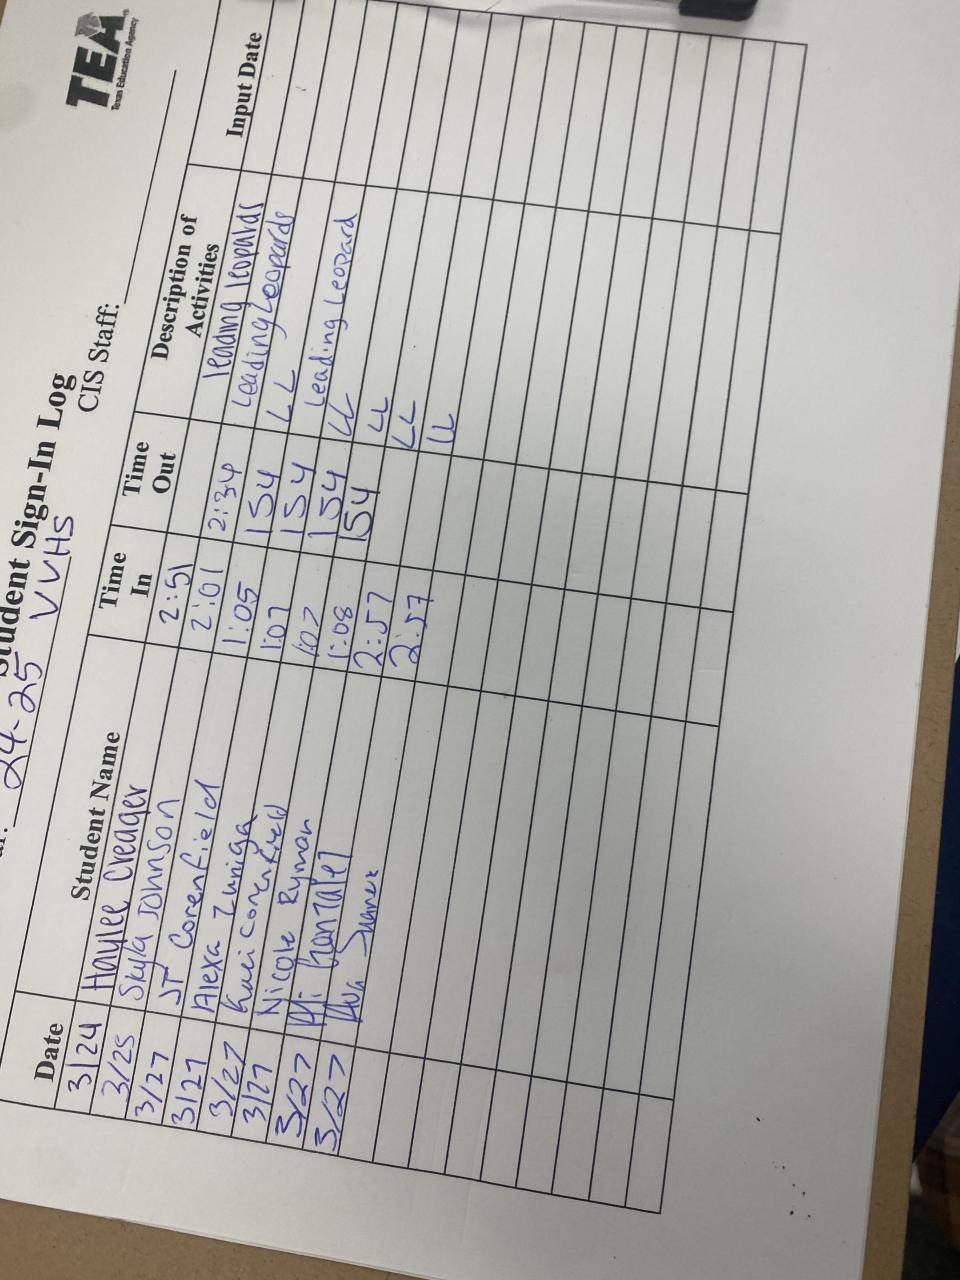 TEA
Texas Education Agency
Student Sign-In Log
24-25 VVHS CIS Staff:
Date Student Name Time In Time Out Description of Activities Input Date
3/24 Haylee Creager 2:51 leading leopards
3/25 Skyla Johnson 2:01 2:34 Leading Leopards
3/27 JT Corenfield 1:05 154 LL
3/27 Alexa Zuniga 1:07 154 Leading Leopard
3/27 Kaci Corenfield 1:07 154 LL
3/27 Nicole Ryman 1:08 154 LL
3/27 2:57 LL
3/27 Ava Suarez 2:57 LL